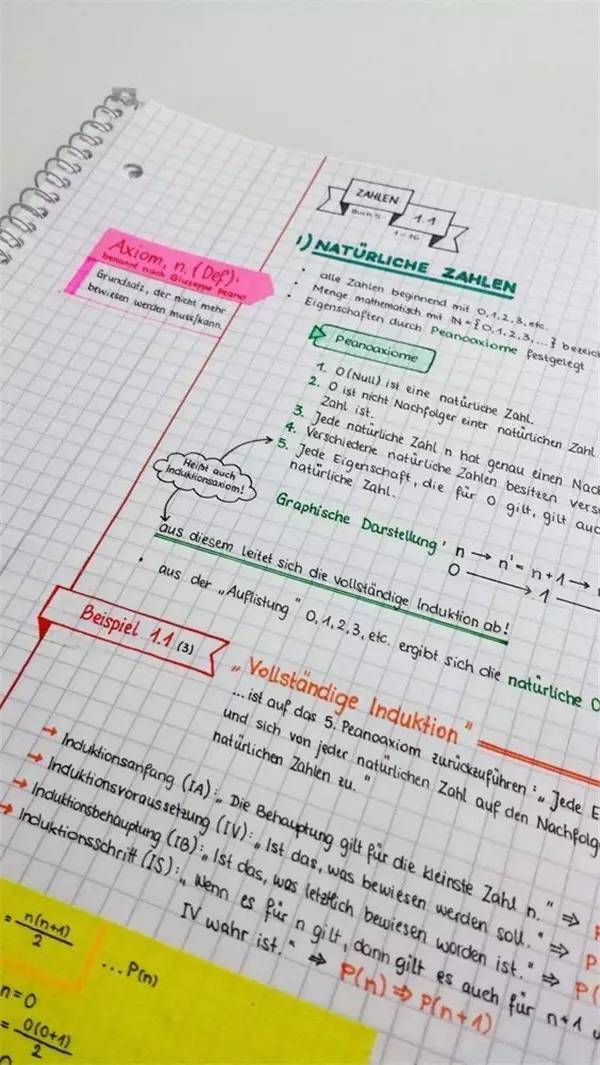 ZAHLEN
1.1
1-16
1) NATÜRLICHE ZAHLEN
Axiom, n. (Def).
benannt nach Giuseppe Peano
Grundsatz, der nicht mehr
bewiesen werden muss/kann.
• alle Zahlen beginnend mit 0,1,2,3, etc.
• Menge mathematisch mit ℕ = {0,1,2,3,...}
• Eigenschaften durch Peanoaxiome festgelegt
Peanoaxiome
1. 0 (Null) ist eine natürliche Zahl.
2. 0 ist nicht Nachfolger einer natürlichen Zahl
Zahl ist.
3. Jede natürliche Zahl n hat genau einen
4. Verschiedene natürliche Zahlen besitzen
5. Jede Eigenschaft, die für 0 gilt, gilt
natürliche Zahl.
Heißt auch
Induktionsaxiom!
Graphische Darstellung: n → n' = n+1 →
0 → 1
aus diesem leitet sich die vollständige Induktion ab!
• aus der „Auflistung" 0,1,2,3, etc. ergibt sich die natürliche
Beispiel 1.1 (3)
„Vollständige Induktion"
...ist auf das 5. Peanoaxiom zurückzuführen: „Jede
und sich von jeder natürlichen Zahl auf den
natürlichen Zahlen zu."
→ Induktionsanfang (IA): „Die Behauptung gilt für die kleinste Zahl n." ⇒
→ Induktionsvoraussetzung (IV): „Ist das, was bewiesen werden soll." ⇒ P
→ Induktionsbehauptung (IB): „Ist das, was letztlich bewiesen worden ist." ⇒ P(
→ Induktionsschritt (IS): „Wenn es für n gilt, dann gilt es auch für n+1
IV wahr ist." ⇒ P(n) ⇒ P(n+1)
= n(n+1)/2 ...P(n)
n=0
= 0(0+1)/2